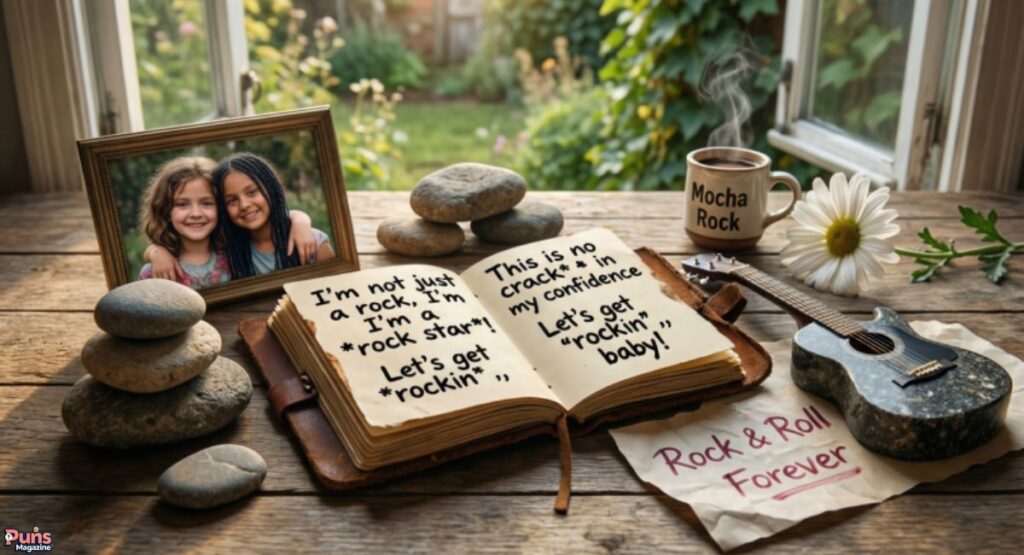 I'm not just
a rock, I'm
I'm a
*rock star*!
Let's get
*rockin* ,,
This is no
crack** in
my confidence
Let's get
“rockin”
baby!"
Mocha
Rock
Rock & Roll
Forever
Puns
Magazine